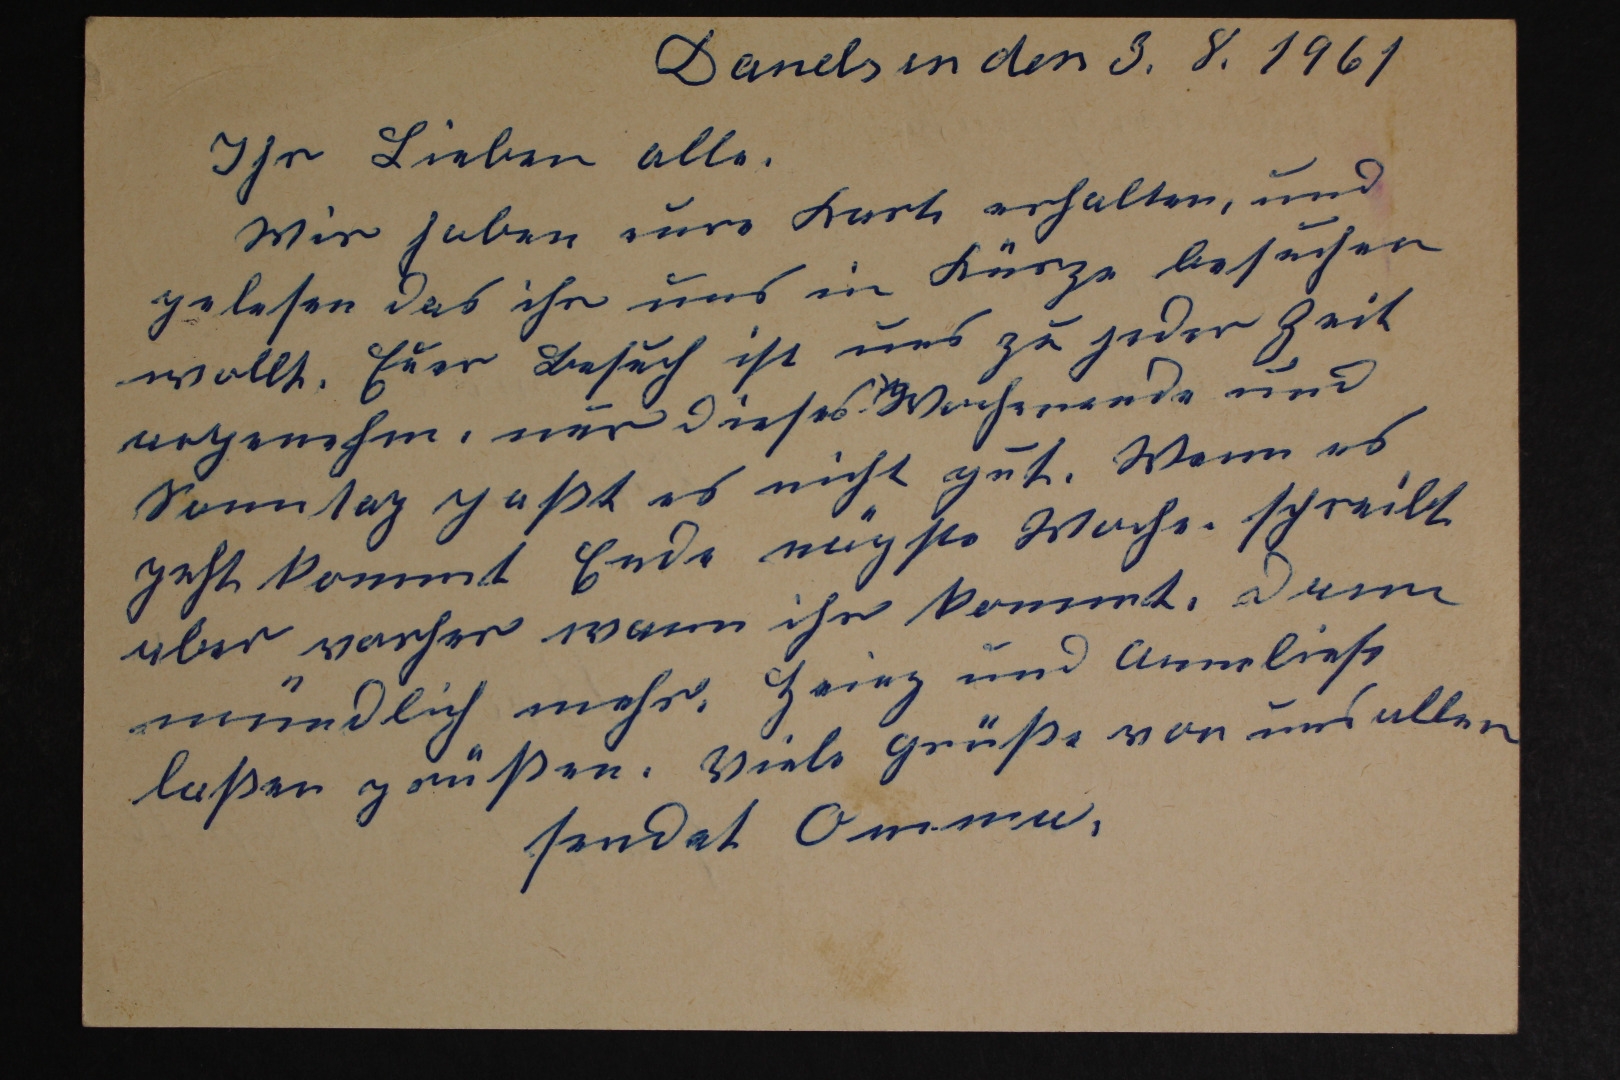 Danelsen den 3. 8. 1961
Ihr Lieben alle.
Wir haben eure Karte erhalten, und
gelesen das ihr uns in Kürze besuchen
wollt. Euer Besuch ist uns zu jeder Zeit
angenehm, nur dieses Wochenende und
Sonntag paßt es nicht gut. Wenn es
geht kommt Ende nägste Woche. schreibt
aber vorher wann ihr kommt. Dann
mündlich mehr. Heinz und Anneliese
laßen grüßen. Viele Grüße von uns allen
sendet Omma.